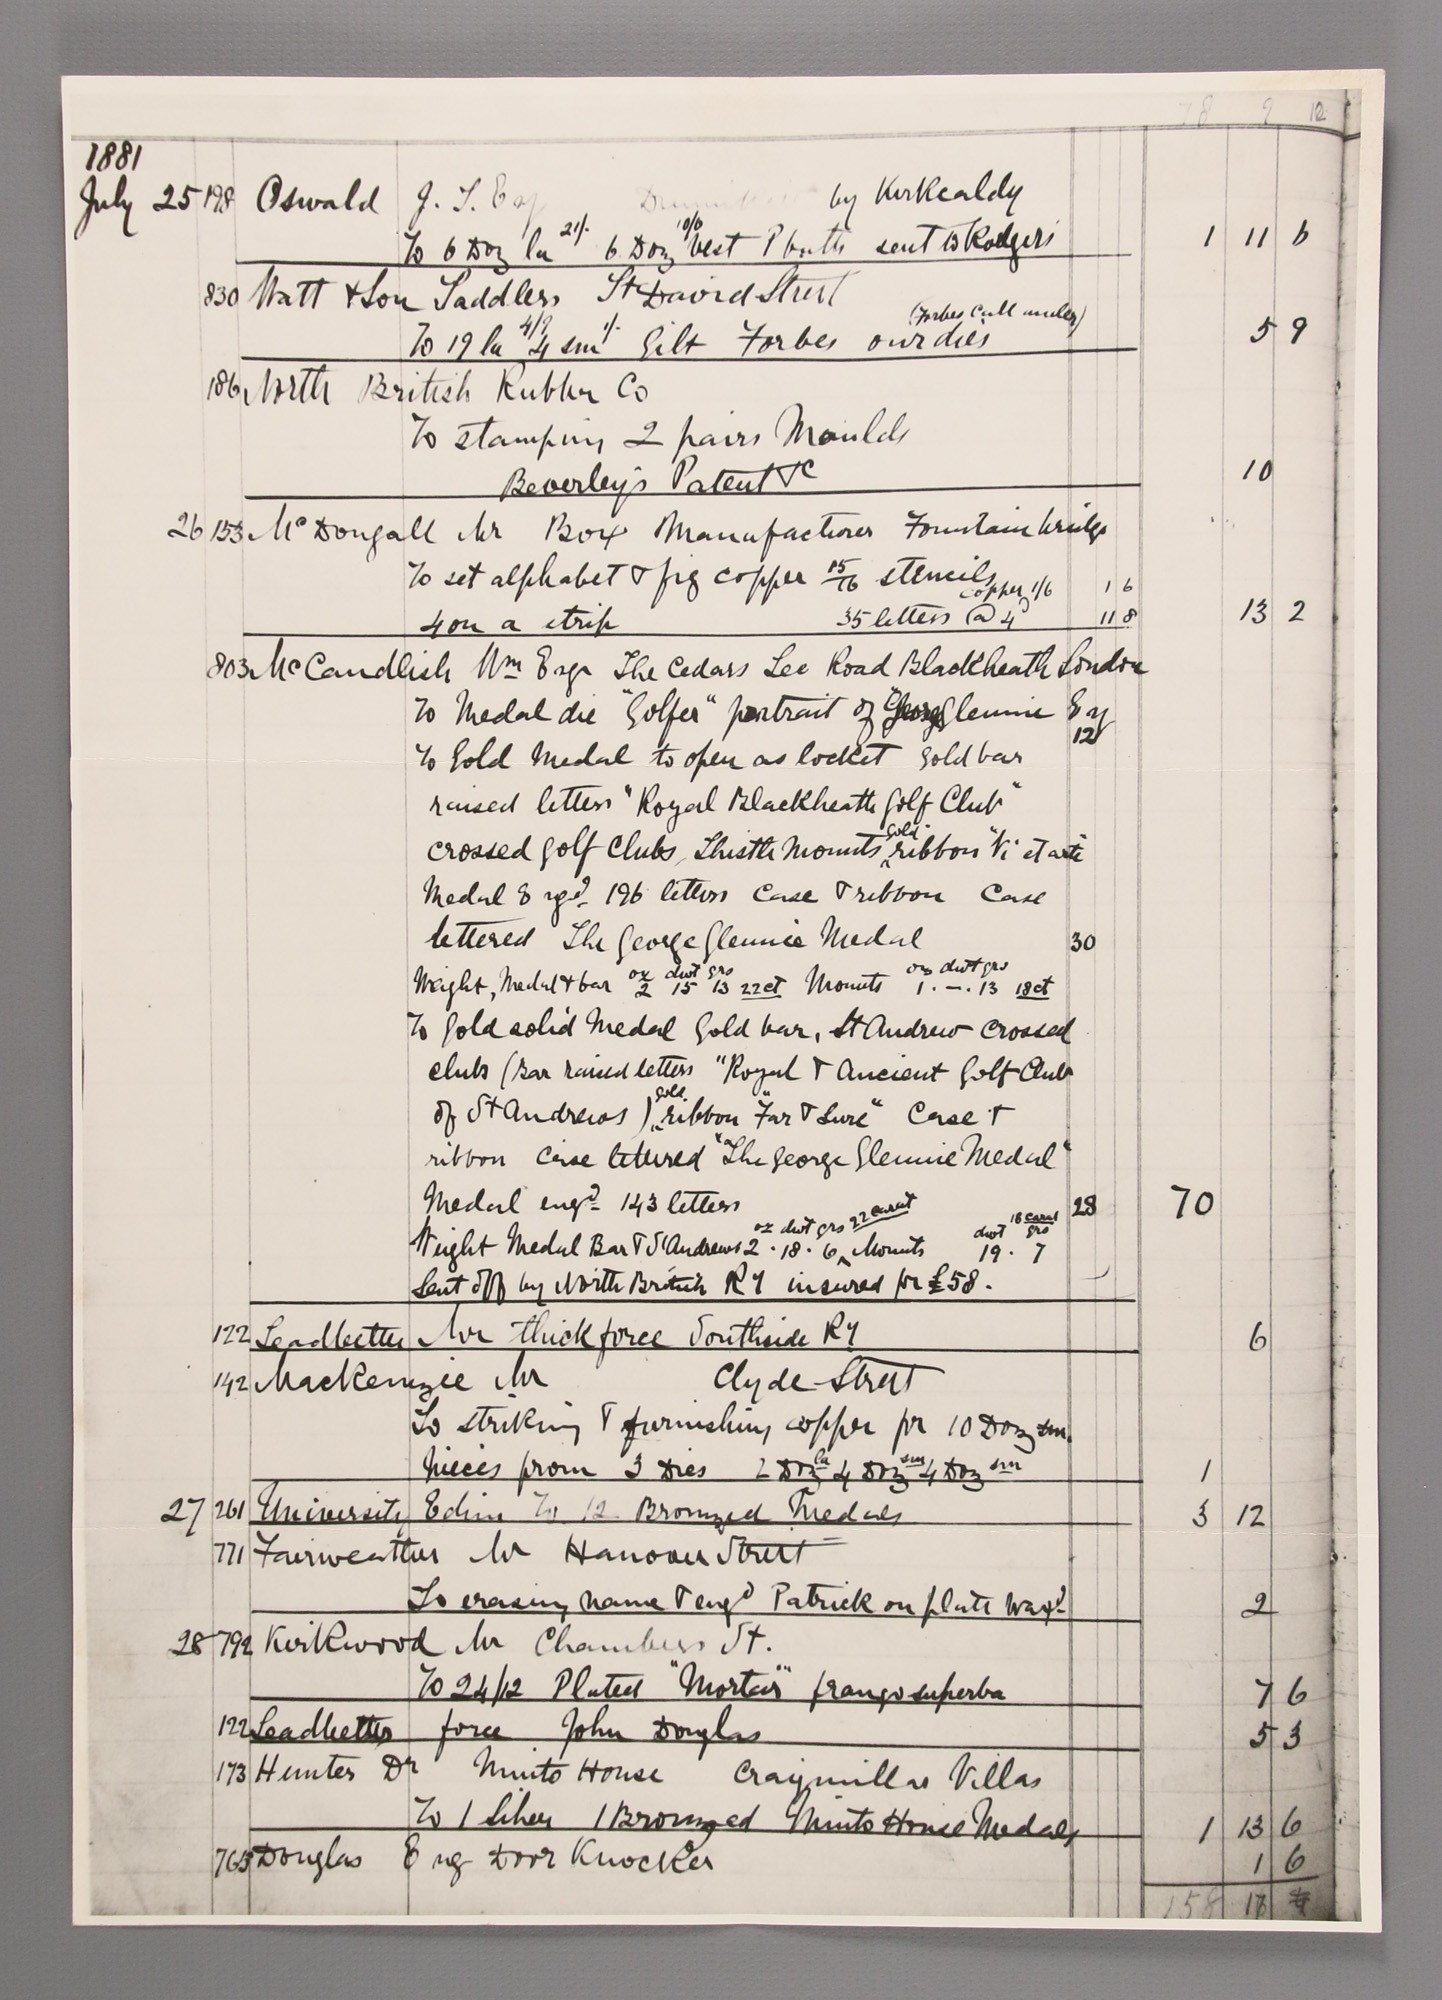 78 9 12
1881
July 25 198 Oswald J. S. Esq by Kirkcaldy
To 6 Doz la 21/- 6 Doz 10/6 best Plate sent to Rodgers 1 11 6
830 Watt & Son Saddlers St David Street
(Forbes Call under)
To 19 la 4/9 4 sm 1/- Gilt Forbes our dies 5 9
186 North British Rubber Co
To stamping 2 pairs Moulds
Beverley's Patent &c 10
26 153 McDougall Mr Box Manufacturer Fountainbridge
To set alphabet & fig copper 15/16 stencils copper 1/6 1 6
4 on a strip 35 letters @ 4d 11 8 13 2
803 McCandlish Wm Esqr The Cedars Lee Road Blackheath London
To Medal die "Golfer" portrait of George Glennie Esq
12
To Gold Medal to open as locket gold bar
raised letters "Royal Blackheath Golf Club"
crossed golf Clubs, Thistle Mounts gold ribbon "Vi et arte
Medal Engd 196 letters Case & ribbon Case
lettered The George Glennie Medal 30
Weight, Medal & bar oz 2 dwt 15 grs 13 22ct Mounts oz 1 . dwt - . grs 13 18ct
To Gold solid Medal Gold bar, St Andrew Crossed
clubs (Bar raised letters "Royal & Ancient Golf Club
of St Andrews) gold ribbon "Far & Sure" Case &
ribbon Case lettered "The George Glennie Medal"
Medal engd 143 letters 28 70
Weight Medal Bar & St Andrews oz 2 . dwt 18 . grs 6 22 carat Mounts dwt 19 . grs 7 18 carat
Sent off by North British Ry insured for £58.
122 Leadbetter Mr thick force Southside Ry 6
142 Mackenzie Mr Clyde Street
To striking & furnishing copper for 10 Doz sm.
pieces from 3 Dies 2 Doz la 4 Doz sm 4 Doz sm 1
27 261 University Edin To 12 Bronzed Medals 3 12
771 Fairweather Mr Hanover Street
To erasing name & engd Patrick on plate waxd 2
28 792 Kirkwood Mr Chambers St.
To 24/12 Plated "Mortar" frango superba 7 6
122 Leadbetter force John Douglas 5 3
173 Hunter Dr Minto House Craigmillar Villas
To 1 Silver 1 Bronzed Minto House Medals 1 13 6
763 Douglas Eng Door Knocker 1 6
158 17